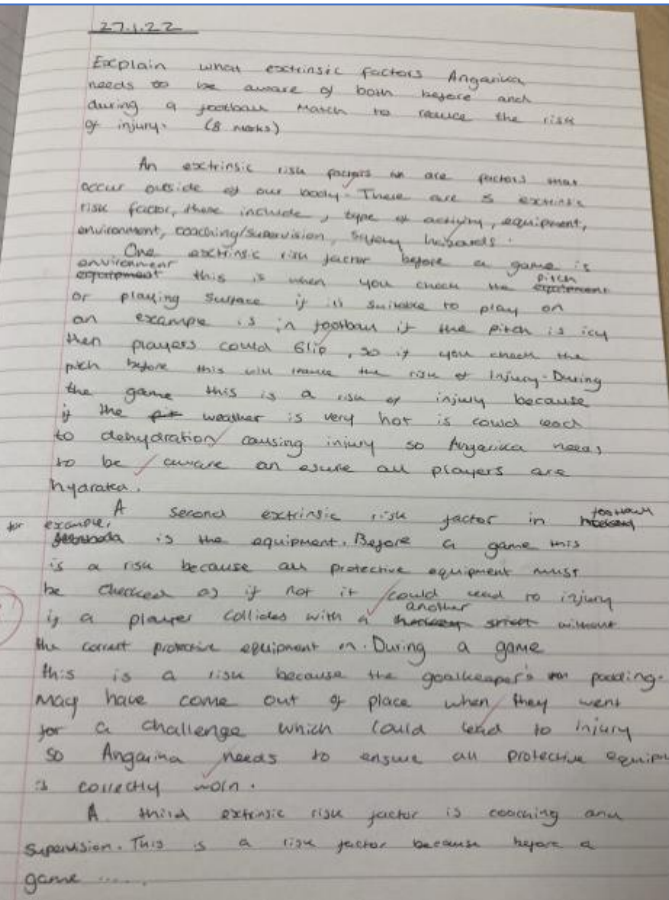 27.1.22
Explain what extrinsic factors Angarika
needs to be aware of both before and
during a football match to reduce the risk
of injury. (8 marks)
An extrinsic risk factors are factors that
occur outside of our body. There are 5 extrinsic
risk factor, these include, type of activity, equipment,
environment, coaching/supervision, safety hazards.
One extrinsic risk factor before a game is
environment
equipment this is when you check the pitch equipment
or playing surface if it is suitable to play on
an example is in football if the pitch is icy
then players could slip, so if you check the
pich before this will reduce the risk of injury. During
the game this is a risk of injury because
if the weather is very hot is could lead
to dehydration causing injury so Angarika needs
to be aware an esure all players are
hydrated.
A second extrinsic risk factor in football
for example, is the equipment. Before a game this
is a risk because all protective equipment must
be checked as if not it could lead to injury
if a player collides with a another without
the correct protective equipment on. During a game
this is a risk because the goalkeeper's padding
may have come out of place when they went
for a challenge which could lead to injury
so Angarika needs to ensure all protective equipm
is correctly worn.
A third extrinsic risk factor is coaching and
supervision. This is a risk factor because before a
game ......